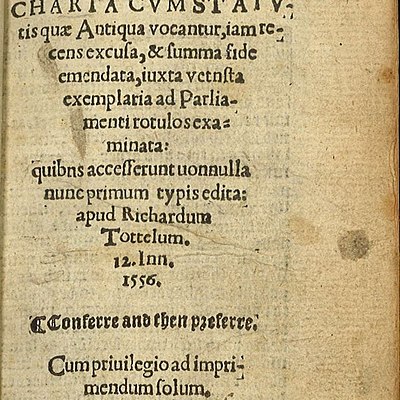 CHARTA CVM STATV-
tis quæ Antiqua vocantur, iam re-
cens excusa, & summa fide
emendata, iuxta vetusta
exemplaria ad Parlia-
menti rotulos exa-
minata:
quibus accesserunt nonnulla
nunc primum typis edita:
apud Richardum
Tottelum.
12. Iun.
1556.
¶Conferre and then preferre.
Cum priuilegio ad impri-
mendum solum.